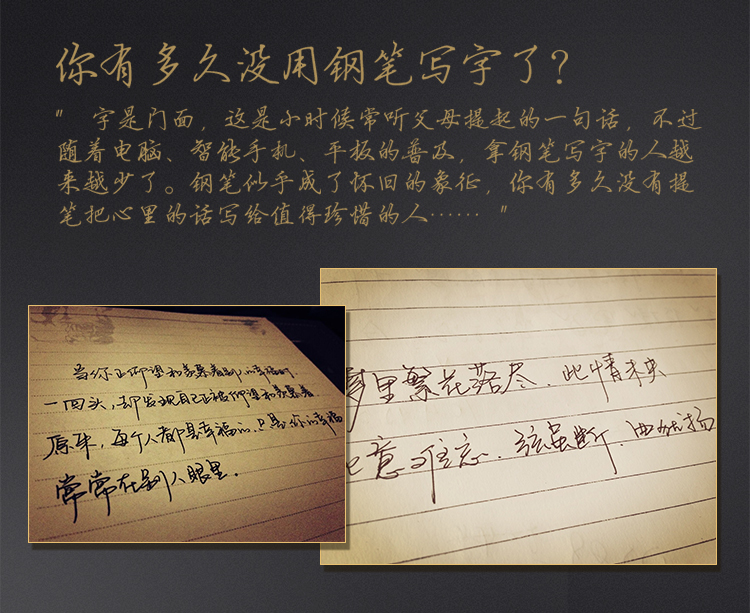 你有多久没用钢笔写字了？
" 字是门面，这是小时候常听父母提起的一句话，不过
随着电脑、智能手机、平板的普及，拿钢笔写字的人越
来越少了。钢笔似乎成了怀旧的象征，你有多久没有提
笔把心里的话写给值得珍惜的人…… "
当你正仰望和羡慕着别人的幸福时
一回头，却发现自己正被仰望和羡慕着
原来，每个人都是幸福的．只是，你的幸福
常常在别人眼里．
梦里繁花落尽．此情未央
意难忘．弦虽断．曲犹扬